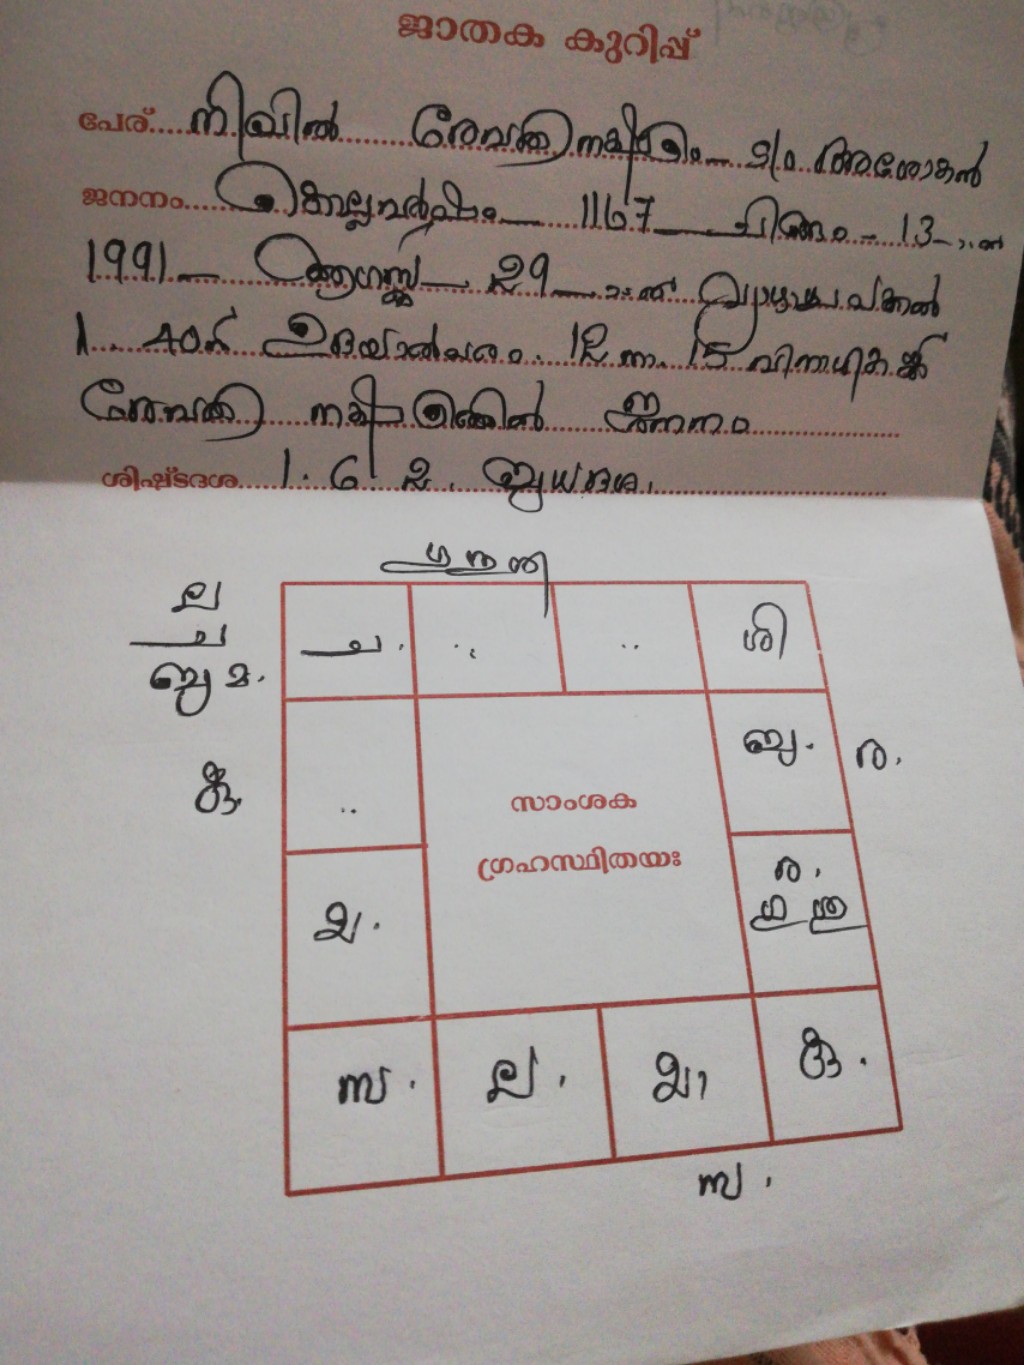 ജാതക കുറിപ്പ്
പേര് നിഖിൽ രേവതി നക്ഷത്രം S/o അശോകൻ
ജനനം കൊല്ലവർഷം 1167 ചിങ്ങം - 13-ാംന്
1991 - ആഗസ്റ്റ് - 29 - ാം ന് വ്യാഴാഴ്ച പകൽ
1. 40 ന് ഉദയാൽപരം. 18 നാ. 15 വിനാഴികക്ക്
രേവതി നക്ഷത്രത്തിൽ ജനനം
ശിഷ്ടദശ 1. 6 2. ബുധദശ.
ല
ച
ബു മ.
ച. .. .. ശി
ബു. ര.
കു. ..
സാംശക
ഗ്രഹസ്ഥിതയഃ
ര.
മ.
സ. ല. മാ കു.
സ.